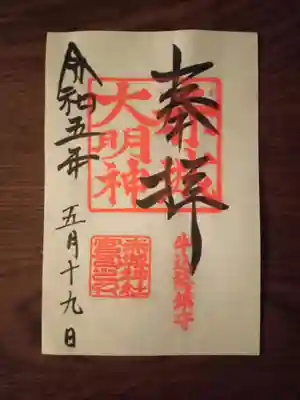 奉拝
赤城
大明神
牛込総鎮守
赤城神社
令和五年
五月十九日